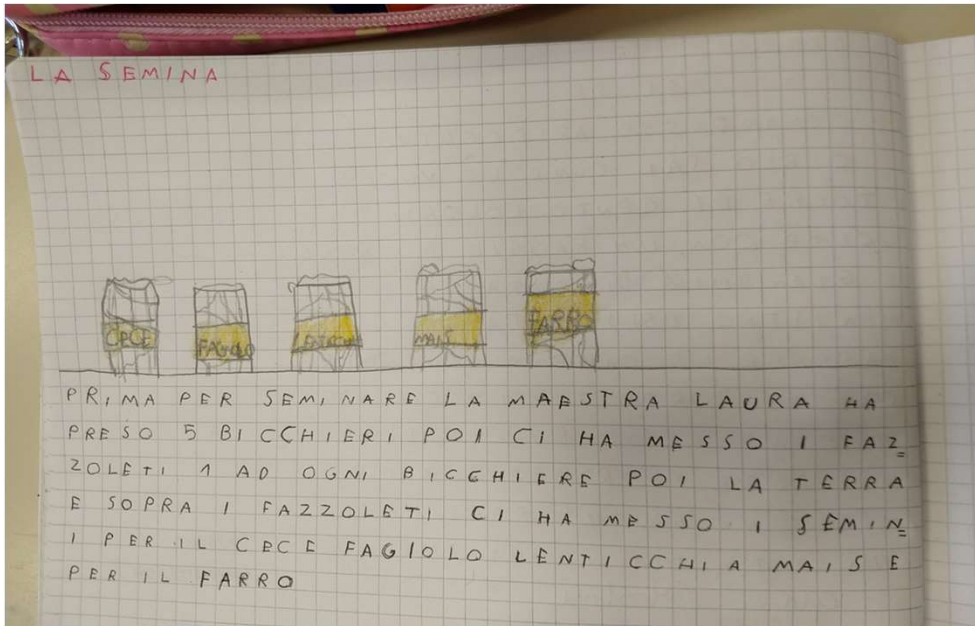 LA SEMINA
CECE FAGIOLO MAIS FARRO
PRIMA PER SEMINARE LA MAESTRA LAURA HA
PRESO 5 BICCHIERI POI CI HA MESSO I FAZ=
ZOLETI 1 AD OGNI BICCHIERE POI LA TERRA
E SOPRA I FAZZOLETI CI HA MESSO I SEMIN=
I PER IL CECE FAGIOLO LENTICCHIA MAIS E
PER IL FARRO